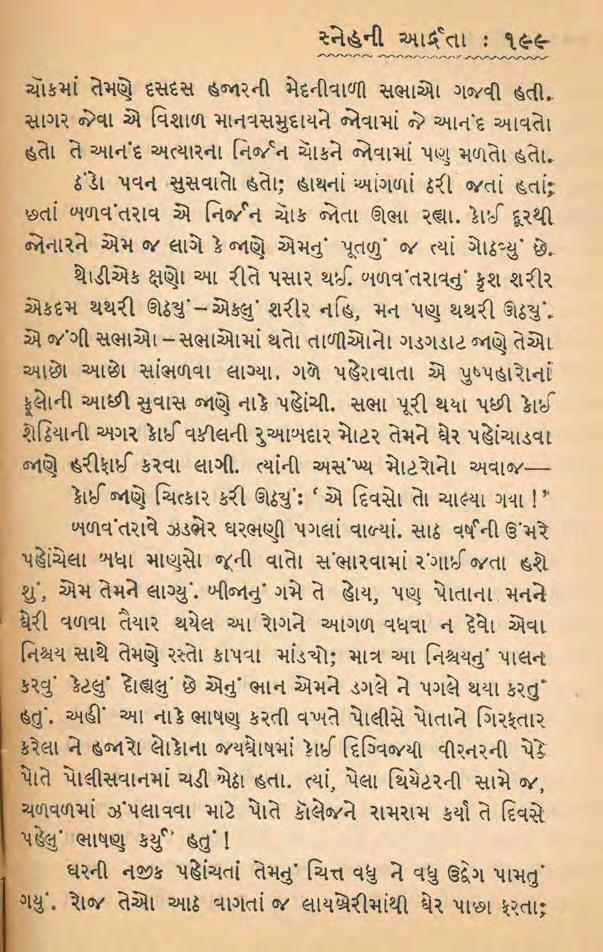 સ્નેહની આર્દ્રતા : ૧૯૯
ચૉકમાં તેમણે દસદસ હજારની મેદનીવાળી સભાઓ ગજવી હતી.
સાગર જેવા એ વિશાળ માનવસમુદાયને જોવામાં જે આનંદ આવતો
હતો તે આનંદ અત્યારના નિર્જન ચૉકને જોવામાં પણ મળતો હતો.
ઠંડો પવન સુસવાતો હતો; હાથનાં આંગળાં ઠરી જતાં હતાં;
છતાં બળવંતરાવ એ નિર્જન ચૉક જોતા ઊભા રહ્યા. કોઈ દૂરથી
જોનારને એમ જ લાગે કે જાણે એમનું પૂતળું જ ત્યાં ગોઠવ્યું છે.
થોડીએક ક્ષણો આ રીતે પસાર થઈ. બળવંતરાવનું કૃશ શરીર
એકદમ થથરી ઊઠયું – એકલું શરીર નહિ, મન પણ થથરી ઊઠયું.
એ જંગી સભાઓ – સભાઓમાં થતો તાળીઓનો ગડગડાટ જાણે તેઓ
આછો આછો સાંભળવા લાગ્યા. ગળે પહેરાવાતા એ પુષ્પહારોનાં
ફૂલોની આછી સુવાસ જાણે નાકે પહોંચી. સભા પૂરી થયા પછી કોઈ
શેઠિયાની અગર કોઈ વકીલની રુઆબદાર મોટર તેમને ઘેર પહોંચાડવા
જાણે હરીફાઈ કરવા લાગી. ત્યાંની અસંખ્ય મોટરોનો અવાજ—
કોઈ જાણે ચિત્કાર કરી ઊઠયું: ‘ એ દિવસો તો ચાલ્યા ગયા ! ’
બળવંતરાવે ઝડભેર ઘરભણી પગલાં વાળ્યાં. સાઠ વર્ષની ઉંમરે
પહોંચેલા બધા માણસો જૂની વાતો સંભારવામાં રંગાઈ જતા હશે
શું, એમ તેમને લાગ્યું. બીજાનું ગમે તે હોય, પણ પોતાના મનને
ઘેરી વળવા તૈયાર થયેલ આ રોગને આગળ વધવા ન દેવો એવા
નિશ્ચય સાથે તેમણે રસ્તો કાપવા માંડયો; માત્ર આ નિશ્ચયનું પાલન
કરવું કેટલું દોહ્યલું છે એનું ભાન એમને ડગલે ને પગલે થયા કરતું
હતું. અહીં આ નાકે ભાષણ કરતી વખતે પોલીસે પોતાને ગિરફતાર
કરેલા ને હજારો લોકોના જયઘોષમાં કોઈ દિગ્વિજયી વીરનરની પેઠે
પોતે પોલીસવાનમાં ચડી બેઠા હતા. ત્યાં, પેલા થિયેટરની સામે જ,
ચળવળમાં ઝંપલાવવા માટે પોતે કૉલેજને રામરામ કર્યા તે દિવસે
પહેલું ભાષણ કર્યું હતું !
ઘરની નજીક પહોંચતાં તેમનું ચિત્ત વધુ ને વધુ ઉદ્વેગ પામતું
ગયું. રોજ તેઓ આઠ વાગતાં જ લાયબ્રેરીમાંથી ઘેર પાછા ફરતા;